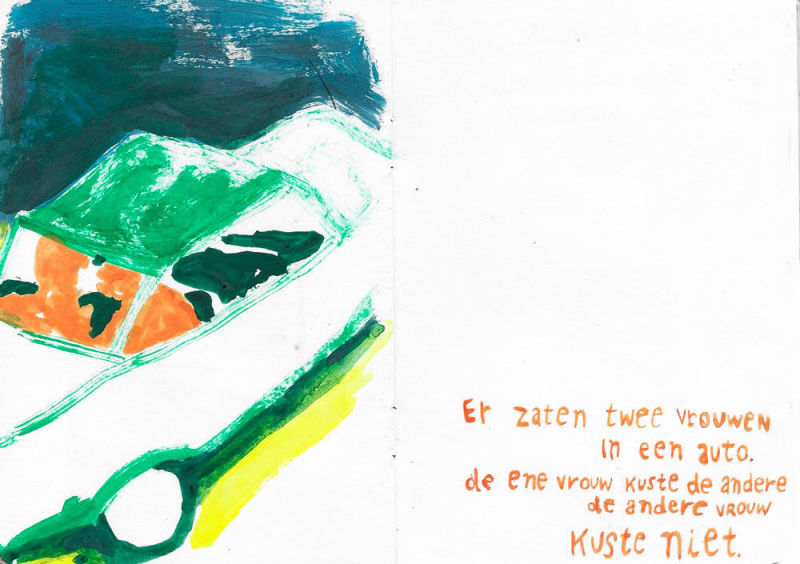 Er zaten twee vrouwen
in een auto.
de ene vrouw kuste de andere
de andere vrouw
kuste niet.